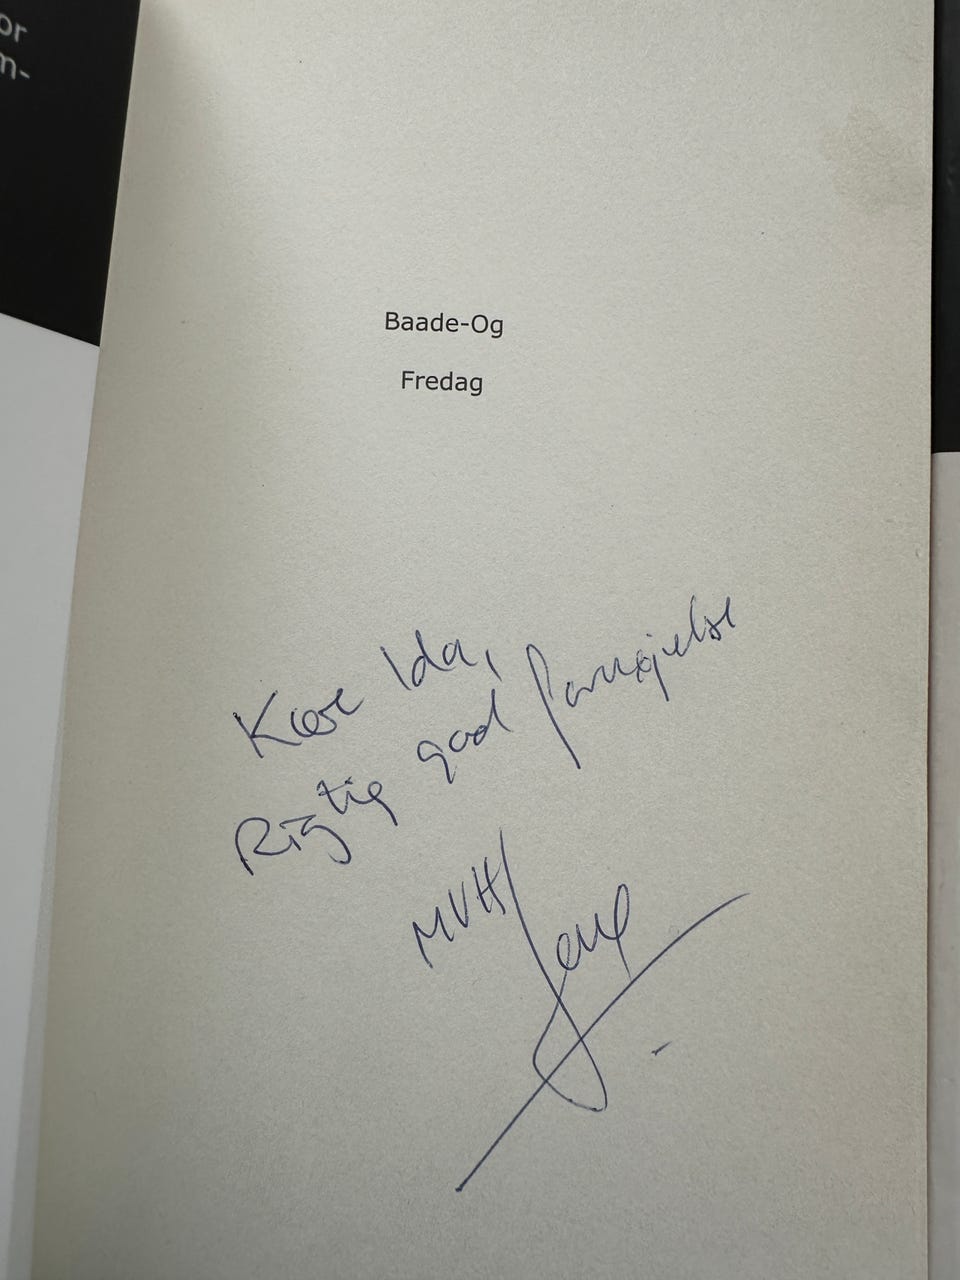 or
m-
Baade-Og
Fredag
Kære Ida,
Rigtig god fornøjelse
MVH